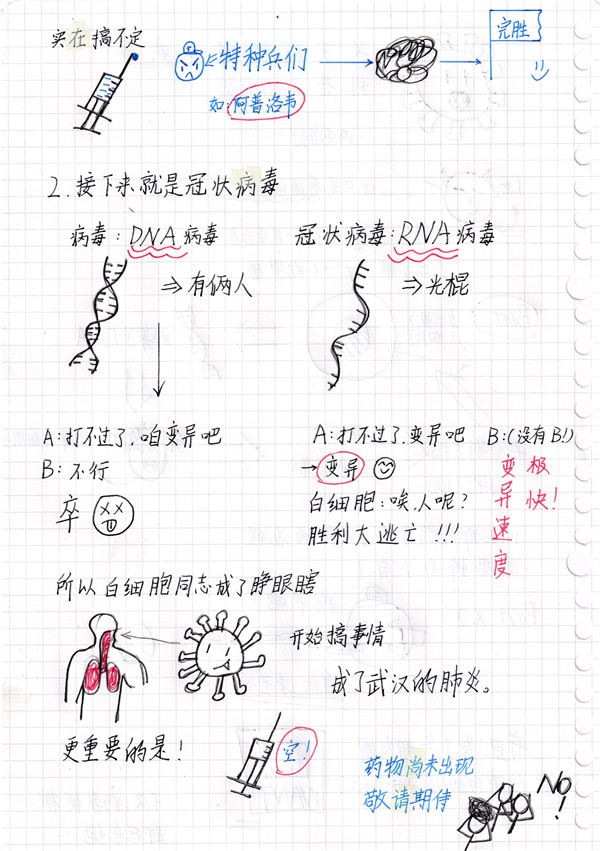 实在搞不定
特种兵们
完胜
如:阿普洛韦
2.接下来就是冠状病毒
病毒:DNA病毒
冠状病毒:RNA病毒
⇒有俩人
⇒光棍
A:打不过了,咱变异吧
B:不行
卒
A:打不过了,变异吧 B:(没有B!)
→变异
白细胞:唉,人呢?
胜利大逃亡!!!
变异速度
极快!
所以白细胞同志成了睁眼瞎
开始搞事情
成了武汉的肺炎。
更重要的是!
空!
药物尚未出现
敬请期待
No!